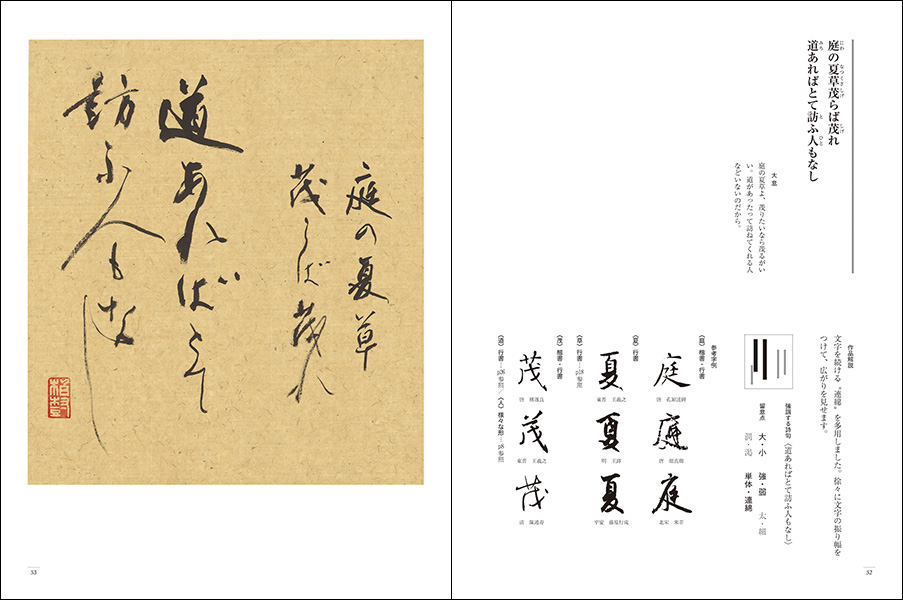 庭の夏草茂らば茂れ
道あればとて訪ふ人もなし
大意
庭の夏草よ、茂りたいなら茂るがい
い。道があったって訪ねてくれる人
などいないのだから。
作品解説
文字を続ける“連綿”を多用しました。徐々に文字の振り幅を
つけて、広がりを見せます。
強調する詩句〈道あればとて訪ふ人もなし〉
留意点 大・小 強・弱 太・細
潤・渇 単体・連綿
参考字例
〈庭〉楷書・行書
庭 庭 庭
唐 孔穎達碑
唐 顔真卿
北宋 米芾
〈夏〉行書
夏 夏 夏
東晋 王羲之
明 王鐸
平安 藤原行成
〈草〉行書…p28参照
〈茂〉楷書・行書
茂 茂 茂
唐 褚遂良
東晋 王羲之
〈道〉行書…p26参照/〈人〉様々な形…p8参照
52
庭の夏草
茂らば茂れ
道あればとて
訪ふ人もなし
53